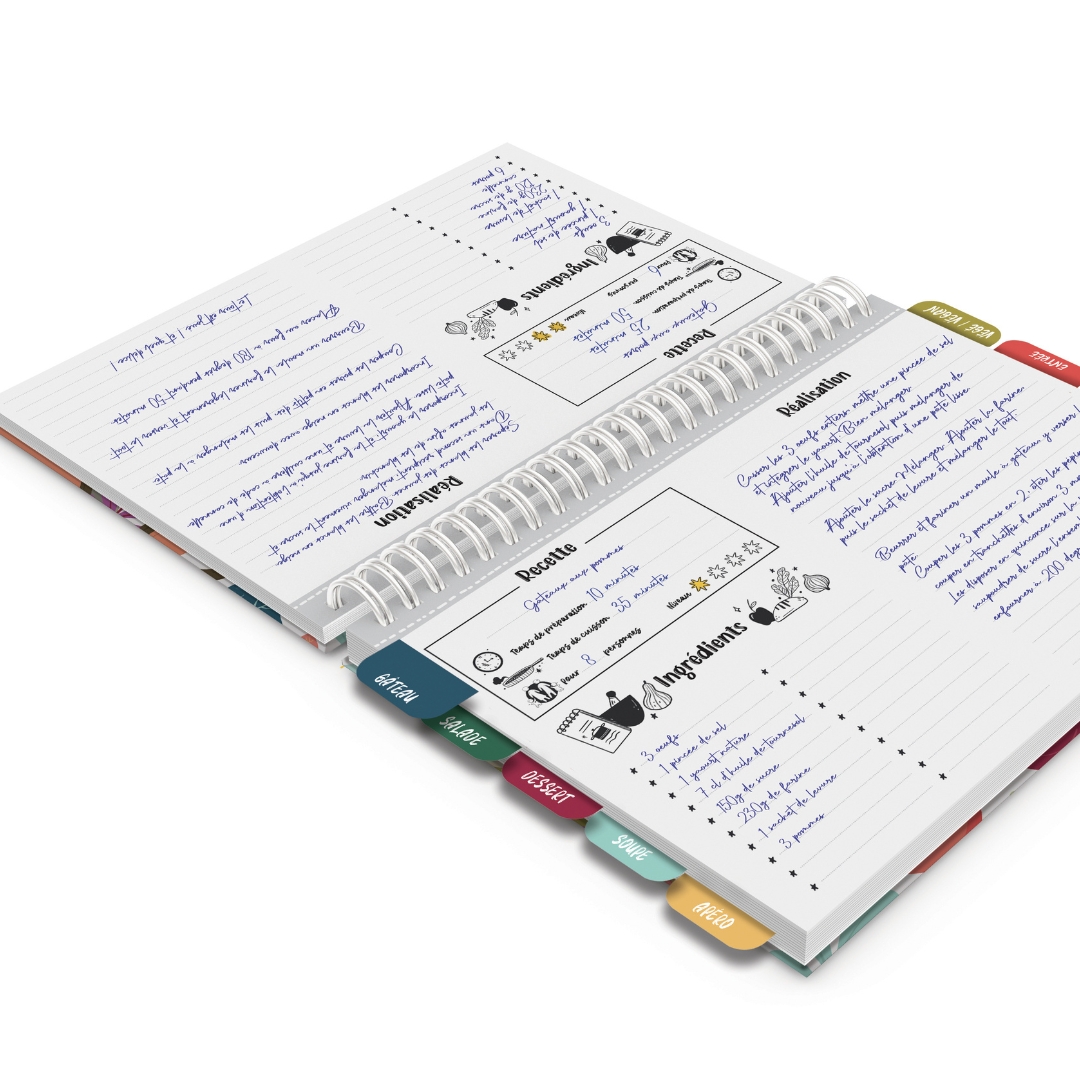 Recette
Gâteau aux poires
Temps de préparation 25 minutes
Temps de cuisson 50 minutes
Pour 6 personnes
Niveau
Ingrédients
3 oeufs
1 pincée de sel
1 yaourt nature
1 sachet de levure
230g de farine
120 g de sucre
cannelle
6 poires
Réalisation
Séparer les blancs des jaunes. Battre les blancs en neige.
Dans un second récipient mélanger vivement le sucre et
les jaunes afin de les blanchir.
Incorporer le yaourt et la farine jusqu'à l'obtention d'une
pâte lisse. Ajouter la levure et une cuillère à café de cannelle
Incorporer les blancs en neige avec douceur
Couper les poires en petits dés puis les mélanger à la pâte
Beurrer un moule, le fariner légèrement et verser le tout
Placer au four à 180 degrés pendant 50 minutes
Le tour est joué ! et quel délice !
Recette
Gâteaux aux pommes
Temps de préparation 10 minutes
Temps de cuisson 35 minutes
Pour 8 personnes
Niveau
Ingrédients
3 oeufs
1 pincée de sel
1 yaourt nature
7 cl d'huile de tournesol
150g de sucre
230g de farine
1 sachet de levure
3 pommes
Réalisation
Casser les 3 oeufs entiers, mettre une pincée de sel
et intégrer le yaourt. Bien mélanger
Ajouter l'huile de tournesol puis mélanger de
nouveau jusqu'à l'obtention d'une pâte lisse
Ajouter le sucre. Mélanger. Ajouter la farine
puis le sachet de levure et mélanger le tout
Beurrer et fariner un moule à gâteaux y verser
pâte
Couper les 3 pommes en 2, ôter les pépi
couper en tranchettes d'environ 3 m
Les disposer en quinconce sur le
saupoudrer de sucre l'ensem
enfourner à 200 deg
VÉGÉ / VEGAN
ENTRÉE
GÂTEAU
SALADE
DESSERT
SOUPE
APÉRO